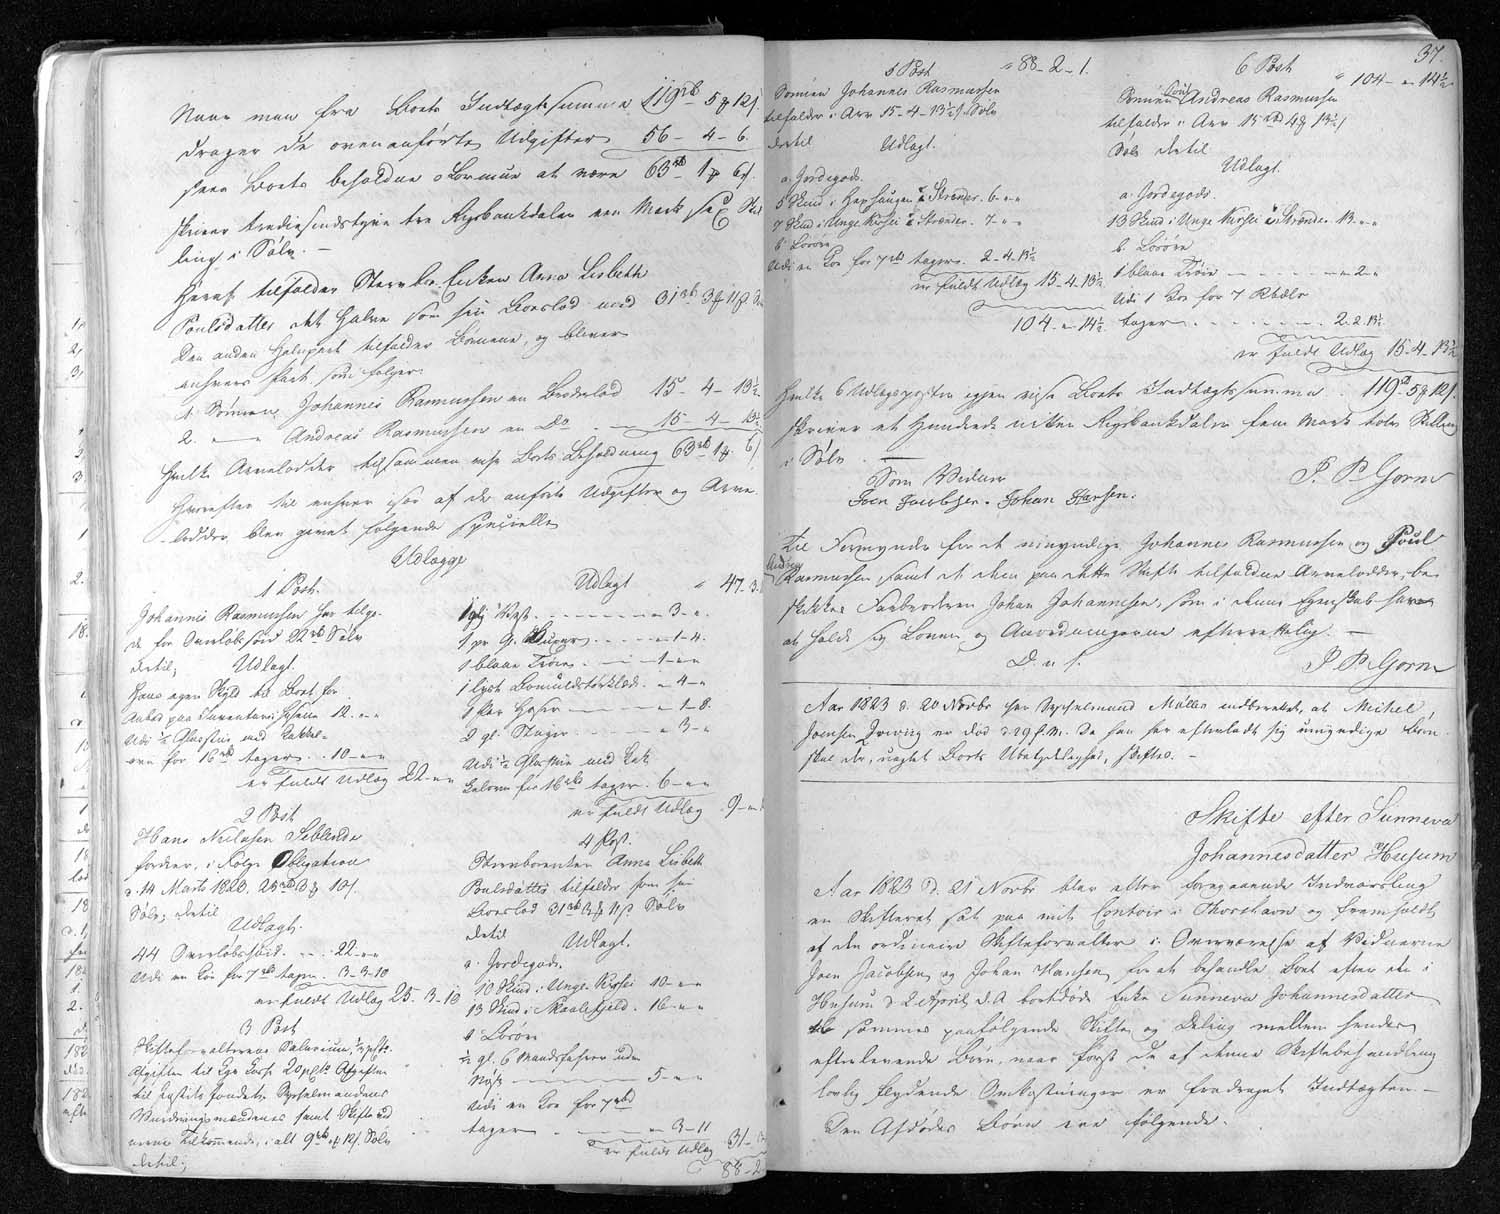 Naar man fra Boets Indtægtssumma 119rb 5 ꝑ 12 s.
drager de ovenanførte Udgifter 56 - 4 - 6.
sees Boets beholdne Formue at være 63rb 1 ꝑ 6 s.
skriver trediesindstyve tre Rigsbankdaler een Mark sex Skil
ling i Sølv. —
Heraf tilfalder Sterbo Enken Anna Lisbeth
Poulsdatter det Halve som sin Boeslod med 31rb 3 ꝑ 11 s.
Den anden Halvpart tilfalder Børnene, og bliver
enhvers Part som følger:
1. Sønnen Johannes Rasmussen en Broderlod 15 - 4 - 13½
2. — Andreas Rasmussen en Do 15 - 4 - 13½
Hvilke Arvelodder tilsammen vise Boets Beholdning 63rb 1 ꝑ 6 s.
Hvorefter til enhver især af de anførte Udgifter og Arve
lodder blev gjort følgende specielle
Udlægge
1 Post.
Johannes Rasmussen har tilgo-
de for Overløbsfoed 22rb Sølv
dertil;
Udlagt.
Hans egen Skyld til Boet for
Anbod paa Inventarii Hysene 12. „ „
Udi ½ Glasstue med Kakkel-
ovn for 16rb tager 10 „ „
er fuldt Udlæg 22 „ „
2 Post
Hans Nielsen Seblende
fordrer, i Følge Obligation
14 Marts 1823. 25rb 3 ꝑ 10 s.
Sølv; dertil
Udlagt.
44 Overløbsfoed 22 „ „
Udi en Koe for 7rb tager 3-3-10
er fuldt Udlæg 25. 3-10
3 Post
Skifteforvalterens Salarium, ½ pCto
Afgiften til Cgo Cass. 20 pCto Afgiften
til Justits fondet, Sysselmandens
Vurderingsmændenes samt Skiftevid
nerne Tilkommende, i alt 9rb „ ꝑ 12 s. Sølv
dertil;
Udlagt „ 47. 3.
1 graa Vest — „ 3 „
1 pr gl. Buxer — „ 1 - 4.
1 blaa Trøie — „ 1 „ „
1 lyst Bomuldstørklæde „ 4 „
1 Par Hoser — „ 1 - 8.
2 gl. Stager — „ 3 „
Udi ½ Glasstue med Kak
kelovn for 16rb tager 6 „ „
er fuldt Udlæg 9 „
4 Post.
Sterboenken Anna Lisbeth
Poulsdatter tilfalder som sin
Boeslod 31rb 3 ꝑ 11 s. Sølv
dertil
Udlagt.
a. Jordegods.
10 Skind i Unge Kirsei 10 „ „
13 Skind i Skaalefjeld. 16 „ „
b Løsøre
½ gl. 6 Mandsfahrer uden
Nøst — 5 „ „
Udi en Koe for 7rb
tager — „ 3 - 11
er fuldt Udlæg 31 - 3
88 - 2
37.
5 Post „ 88 - 2 - 1.
Sønnen Johannes Rasmussen
tilfalder i Arv 15 - 4 - 13½ s. Sølv
dertil
Udlagt.
a. Jordegods.
5 Skind i Hørhaugen i Strender 6 „ „
7 Skind i Unge Kirsei i Strender 7 „ „
b. Løsøre
Udi en Koe for 7rb tager 2 - 4 - 13½
er fuldt Udlæg 15 - 4 - 13½
104 „ 14½
6 Post „ 104 „ 14½
Sønnen Poul Andreas Rasmussen
tilfalder i Arv 15rb 4 ꝑ 13½ s
Sølv dertil
Udlagt.
a. Jordegods.
13 Skind i Unge Kirsei i Strender 13 „ „
b. Løsøre
1 blaa Trøie — „ 2 „
Udi 1 Koe for 7 Rbdlr
tager 2. 2. 13½
er fuldt Udlæg 15. 4. 13½
Hvilke 6 Udlægsposter igjen vise Boets Indtægtssumma 119rb 5 ꝑ 12 s.
skriver et Hundrede nitten Rigsbankdaler fem Mark tolv Skilling
i Sølv. —
P. P. Gorm
Som Vidner
Joen Jacobsen. Johan Hansen.
Til Formynder for de umyndige Johannes Rasmussen og Poul
Andreas Rasmussen, samt de dem paa dette Skifte tilfaldne Arvelodder, be
skikkes Farbroderen Johan Johannesen, som i denne Egenskab haver
at holde sig Loven og Anordningerne efterrettelig. —
D. u. s.
P. P. Gorm
Aar 1823 d. 20 Novbr har Sysselmand Müller indberettet, at Michel
Joensen Qvivig er død d. 29 f. M. Da han har efterladt sig umyndige Børn
skal der, uagtet Boets Ubetydelighed, skiftes. —
Skifte efter Sunneva
Johannesdatter Husum
Aar 1823 d. 21 Novbr blev efter foregaaende Indvarsling
en Skifteret sat paa mit Contoir i Thorshavn og fremholdt
af den ordinaire Skifteforvalter i Overværelse af Vidnerne
Joen Jacobsen og Johan Hansen for at behandle Boet efter den i
Husum d. 2 April d. A. bortdøde Enke Sunneva Johannesdatter
til sammes paafølgende Skifte og Deling mellem hendes
efterlevende Børn, naar først de af denne Skiftebehandling
lovlig flydende Omkostninger er fradraget Indtægten. —
Den Afdødes Børn ere følgende.